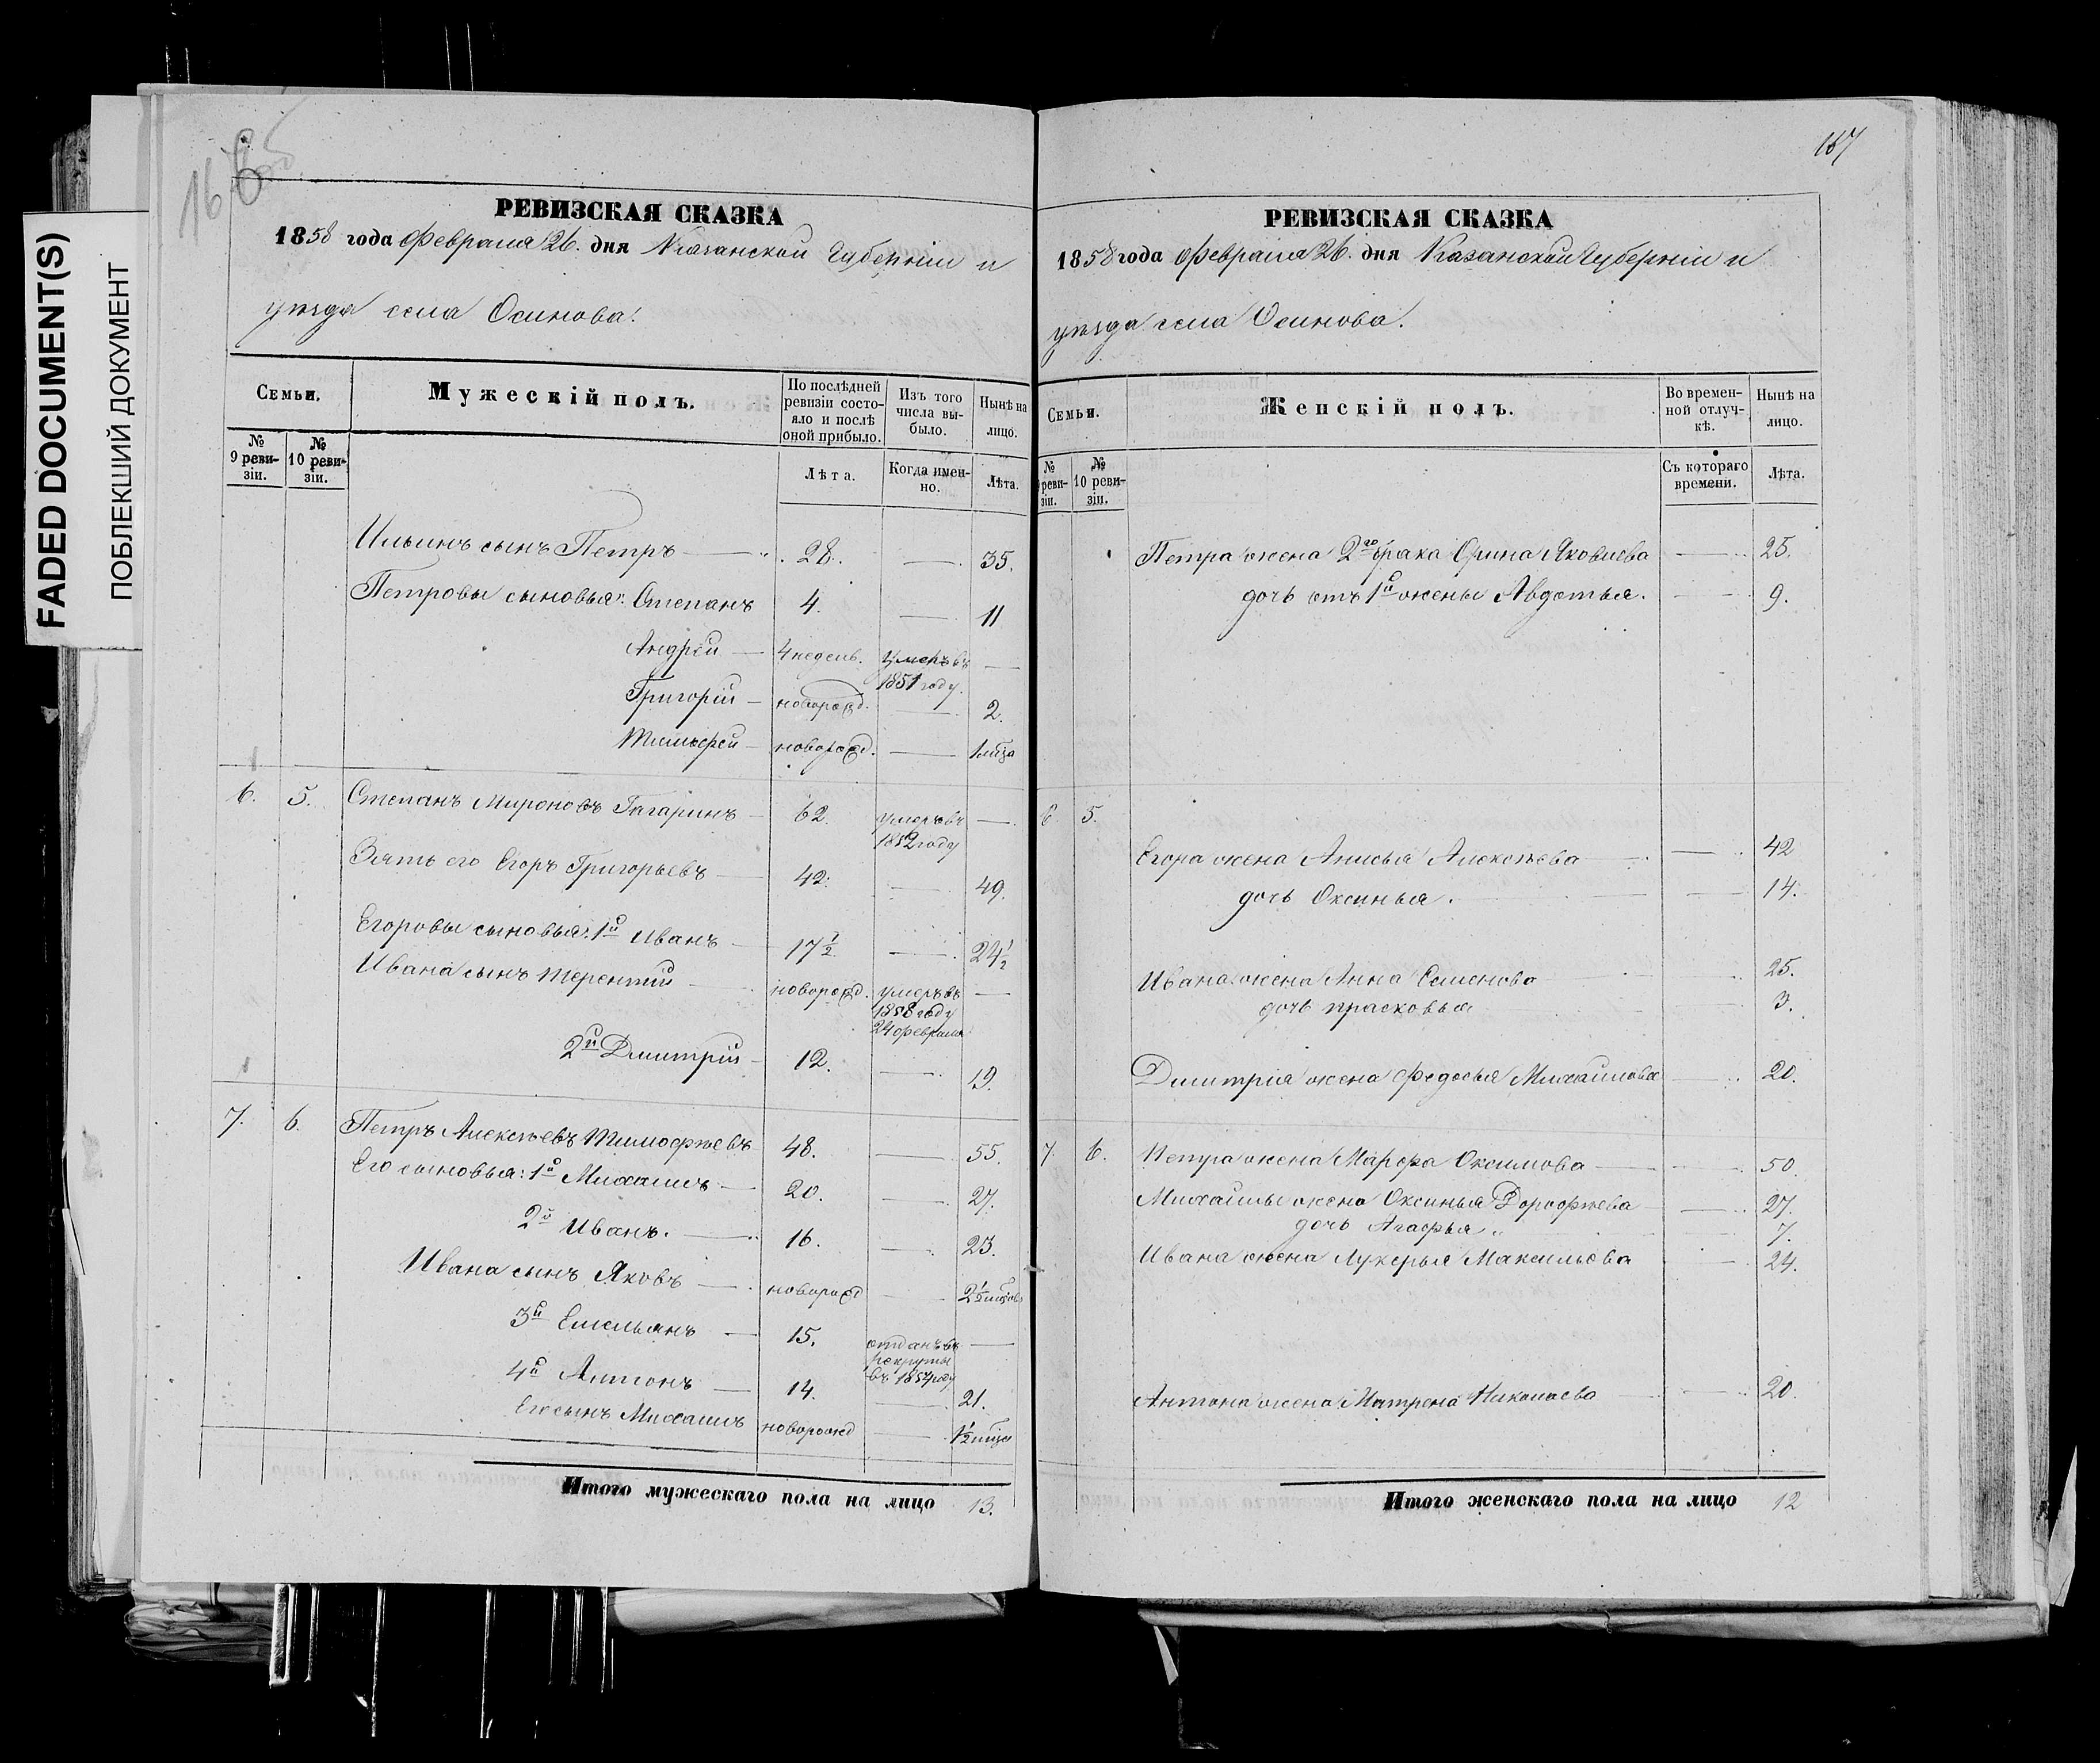 FADED DOCUMENT(S)
ПОБЛЕКШИЙ ДОКУМЕНТ
166
РЕВИЗСКАЯ СКАЗКА
1858 года Февраля 26. дня Казанской Губерніи и
уѣзда села Осинова.
Семьи.
Мужескій полъ.
По послѣдней ревизіи состояло и послѣ оной прибыло.
Изъ того числа выбыло.
Нынѣ на лицо.
№ 9 ревизіи.
№ 10 ревизіи.
Лѣта.
Когда именно.
Лѣта.
Ильинъ сынъ Петръ — 28. — 35.
Петровы сыновья: Степанъ 4. — 11
Андрей — 4 недель. умеръ въ 1851 году. —
Григорій — новорожд. — 2.
Тимофей — новорожд. — 1 мѣца
6. 5. Степанъ Мироновъ Гагаринъ — 62. умеръ въ 1852 году —
Зять его Егоръ Григорьевъ — 42. — 49.
Егоровы сыновья: 1й Иванъ — 17 1/2 — 24 1/2
Ивана сынъ Терентій — новорожд. умеръ въ 1858 году 24 февраля —
2й Дмитрій — 12. — 19.
7. 6. Петръ Алексѣевъ Тимофѣевъ 48. — 55.
Его сыновья: 1й Михаилъ — 20. — 27.
2й Иванъ. — 16. — 23.
Ивана сынъ Яковъ — новорожд — 2 1/2 мѣцовъ
3й Емельянъ — 15. отданъ въ рекруты въ 1854 году —
4й Антонъ — 14. — 21.
Его сынъ Михаилъ новорожд — 1 1/2 мѣца
Итого мужескаго пола на лицо 13.
167
РЕВИЗСКАЯ СКАЗКА
1858 года Февраля 26. дня Казанской Губерніи и
уѣзда села Осинова.
Семьи.
Женскій полъ.
Во временной отлучкѣ.
Нынѣ на лицо.
№ ревизіи.
№ 10 ревизіи.
Съ котораго времени.
Лѣта.
Петра жена 2го брака Орина Яковлева — 25.
дочь отъ 1й жены Авдотья. — 9.
6 5.
Егора жена Анисья Алексѣева — 42
дочь Оксинья. — 14.
Ивана жена Анна Семенова 25.
дочь Прасковья 3.
Дмитрія жена Федосья Михайлова — 20.
7. 6. Петра жена Марфа Окимова — 50.
Михайлы жена Оксинья Дорофѣева — 27.
дочь Агафья 7.
Ивана жена Лукерья Максимова — 24.
Антона жена Матрена Николаева — 20.
Итого женскаго пола на лицо 12